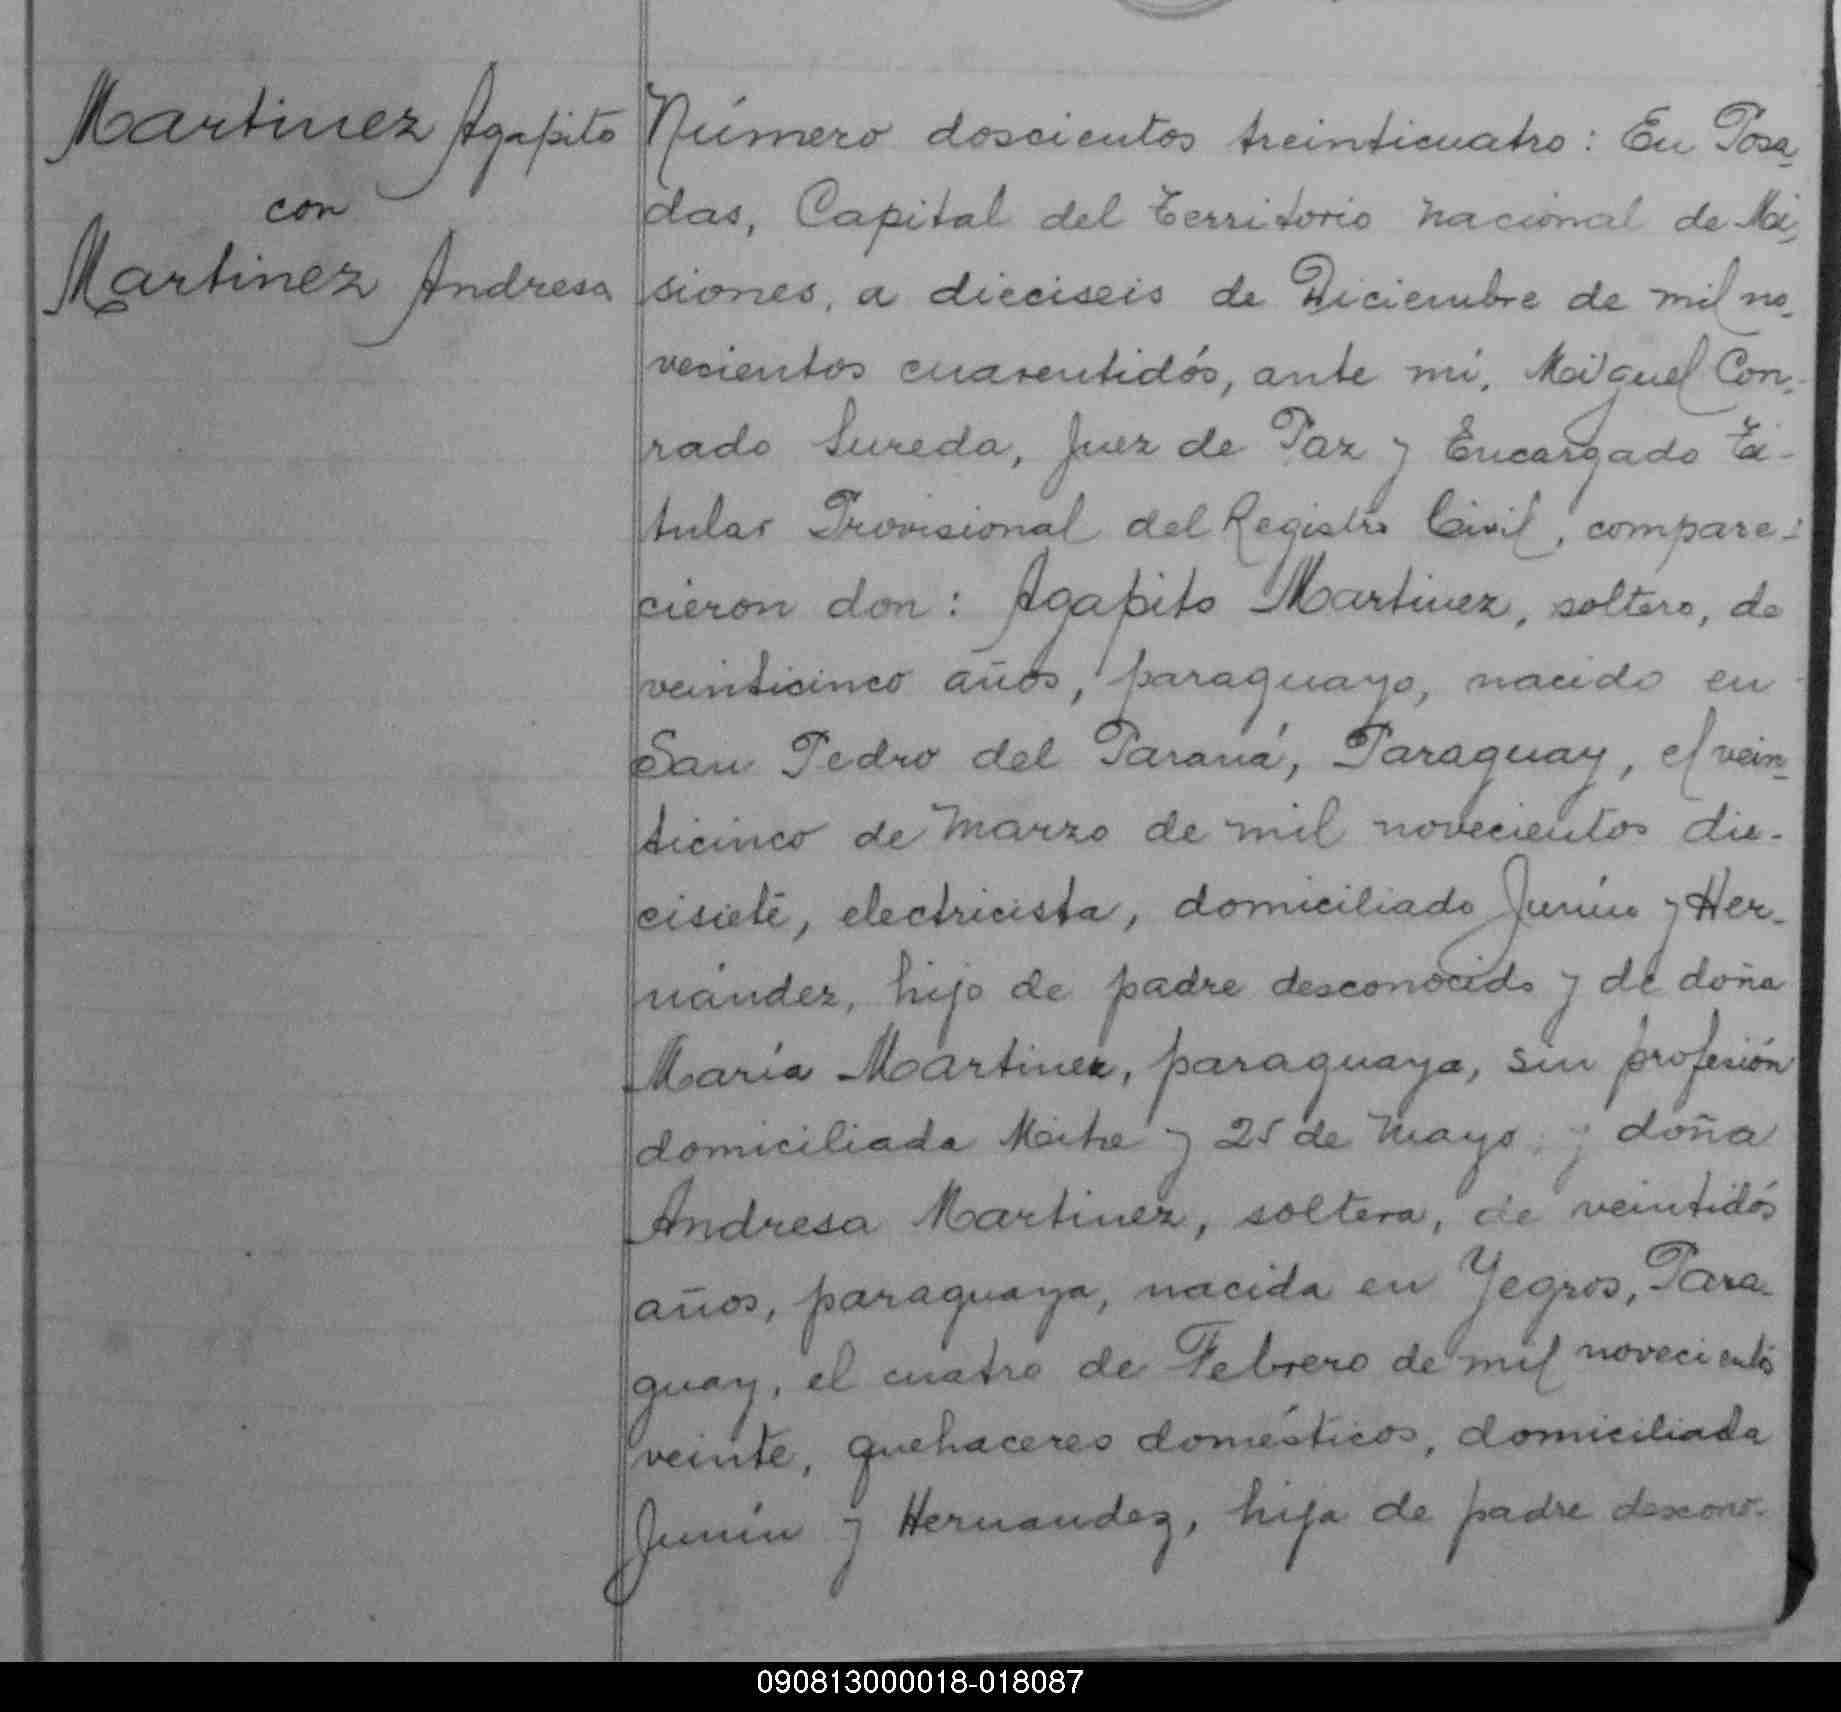 Martinez Agapito
con
Martinez Andresa
Número doscientos treinticuatro: En Posa-
das, Capital del Territorio Nacional de Mi-
siones, a dieciseis de Diciembre de mil no-
vecientos cuarentidós, ante mí, Miguel Con-
rado Sureda, Juez de Paz y Encargado Ti-
tular Provisional del Registro Civil, compare-
cieron don: Agapito Martinez, soltero, de
veinticinco años, paraguayo, nacido en
San Pedro del Paraná, Paraguay, el vein-
ticinco de Marzo de mil novecientos die-
cisiete, electricista, domiciliado Junín y Her-
nández, hijo de padre desconocido y de doña
María Martinez, paraguaya, sin profesión
domiciliada Mitre y 25 de Mayo, y doña
Andresa Martinez, soltera, de veintidós
años, paraguaya, nacida en Yegros, Para-
guay, el cuatro de Febrero de mil novecientos
veinte, quehaceres domésticos, domiciliada
Junín y Hernandez, hija de padre descono-
090813000018-018087